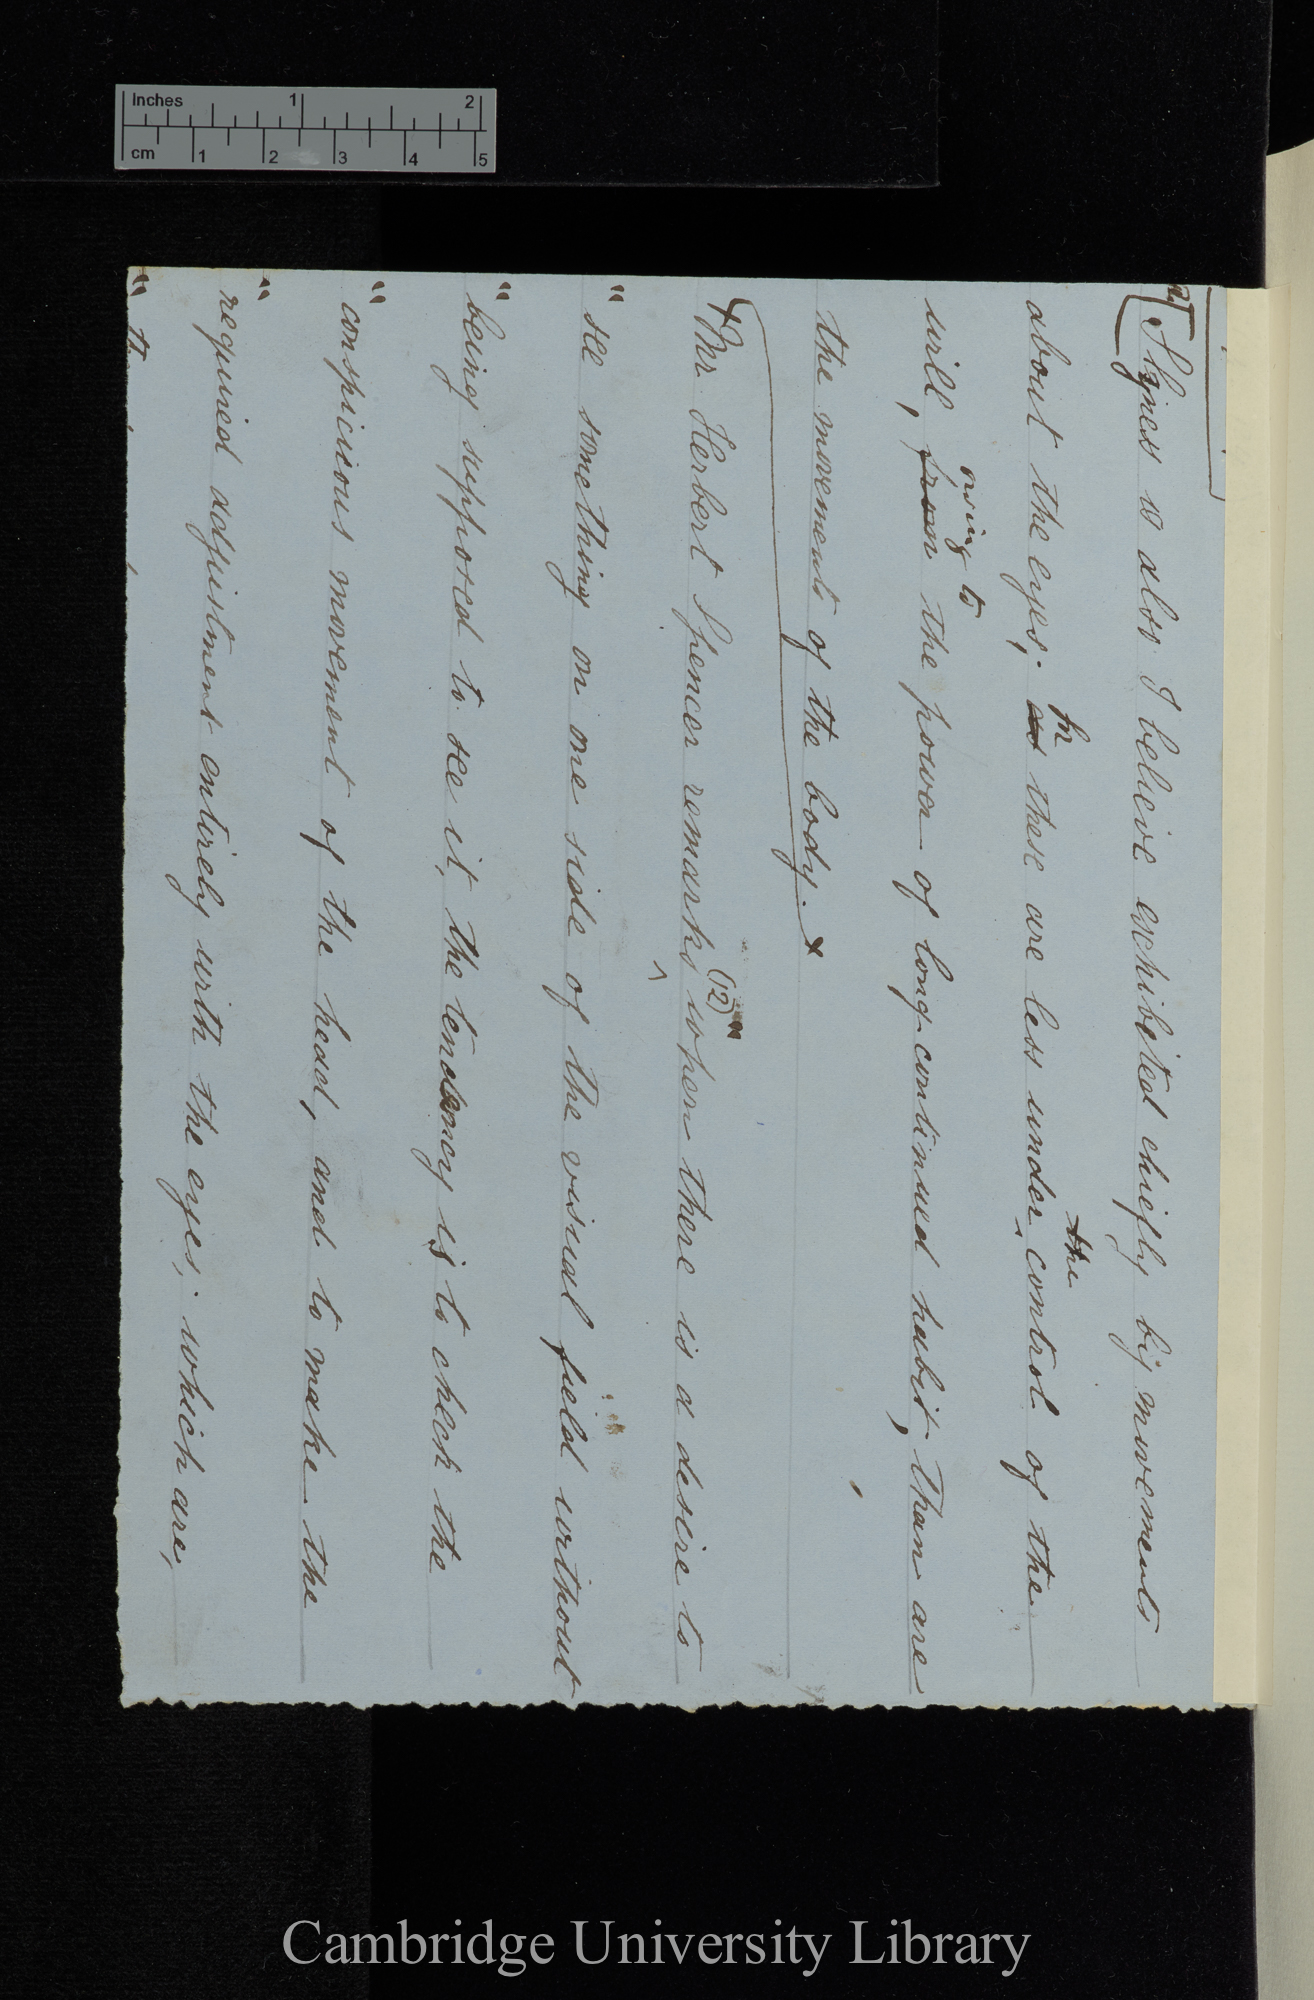 Inches 1 2
cm 1 2 3 4 5
Shyness is also I believe exhibited chiefly by movements
In the
about the eyes; as these are less under control of the
owing to
will, from the power of long-continued habit, than are
the movements of the body. x
x Mr. Herbert Spencer remarks (12) "when there is a desire to
" see something on one side of the visual field without
" being supposed to see it, the tendency is to check the
" conspicuous movement of the head, and to make the
" required adjustment entirely with the eyes; which are,
"
Cambridge University Library